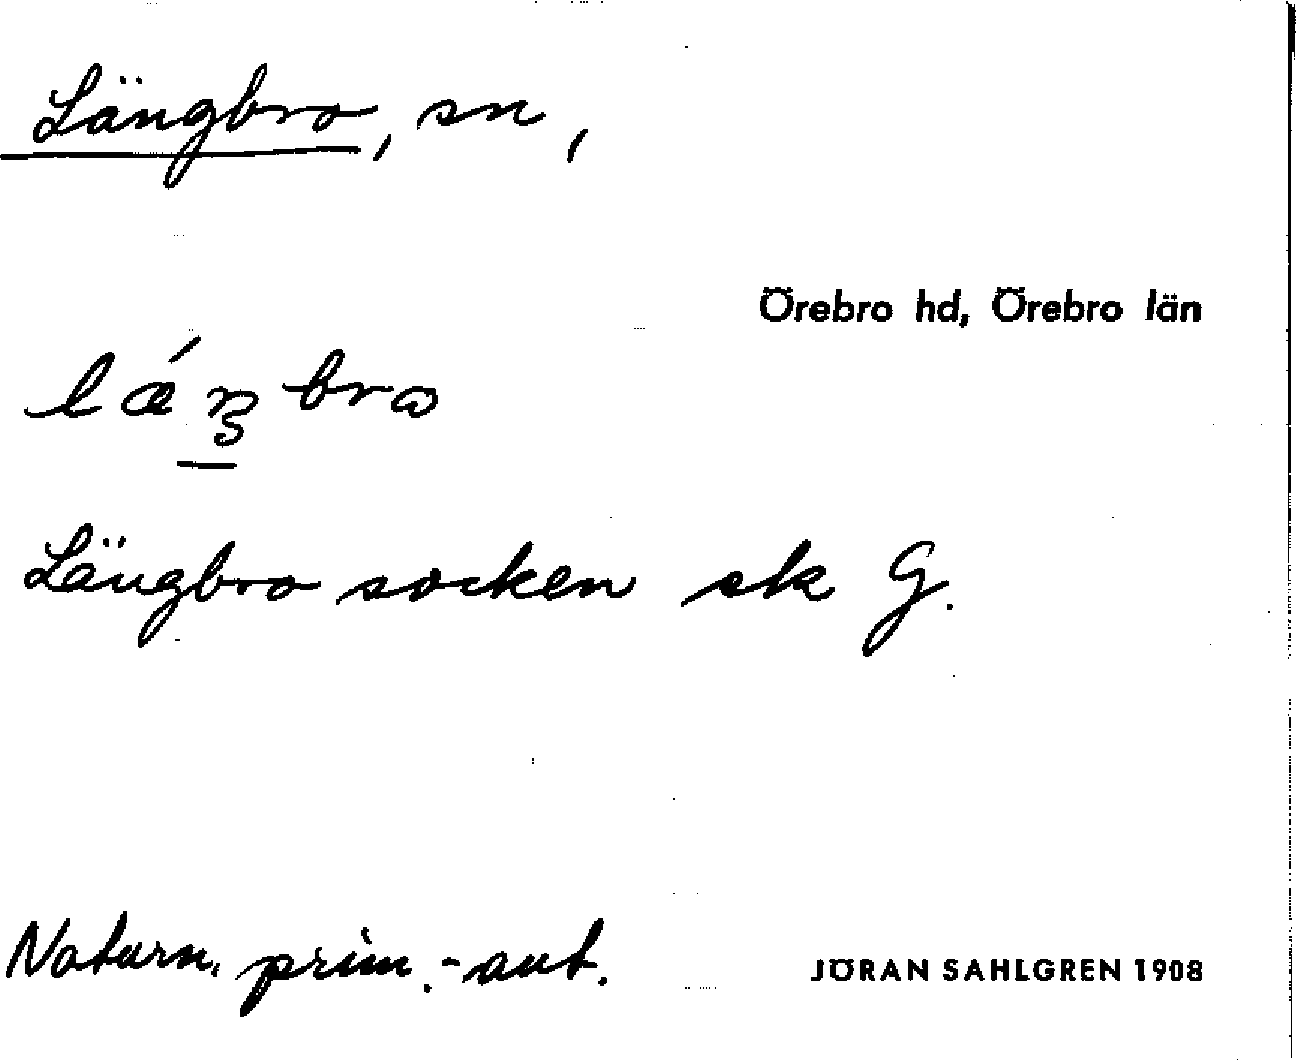 Längbro, sn,
Örebro hd, Örebro län
lǽŋbrω
Längbro socken sk G.
Naturn. prim.-ant.
JÖRAN SAHLGREN 1908